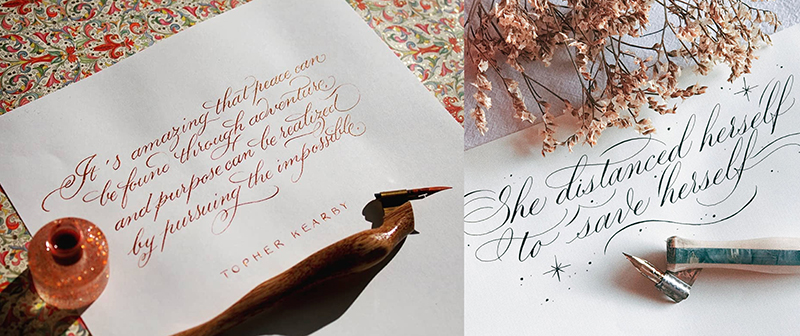 It's amazing that peace can
be found through adventure
and purpose can be realized
by pursuing the impossible
TOPHER KEARBY
She distanced herself
to save herself